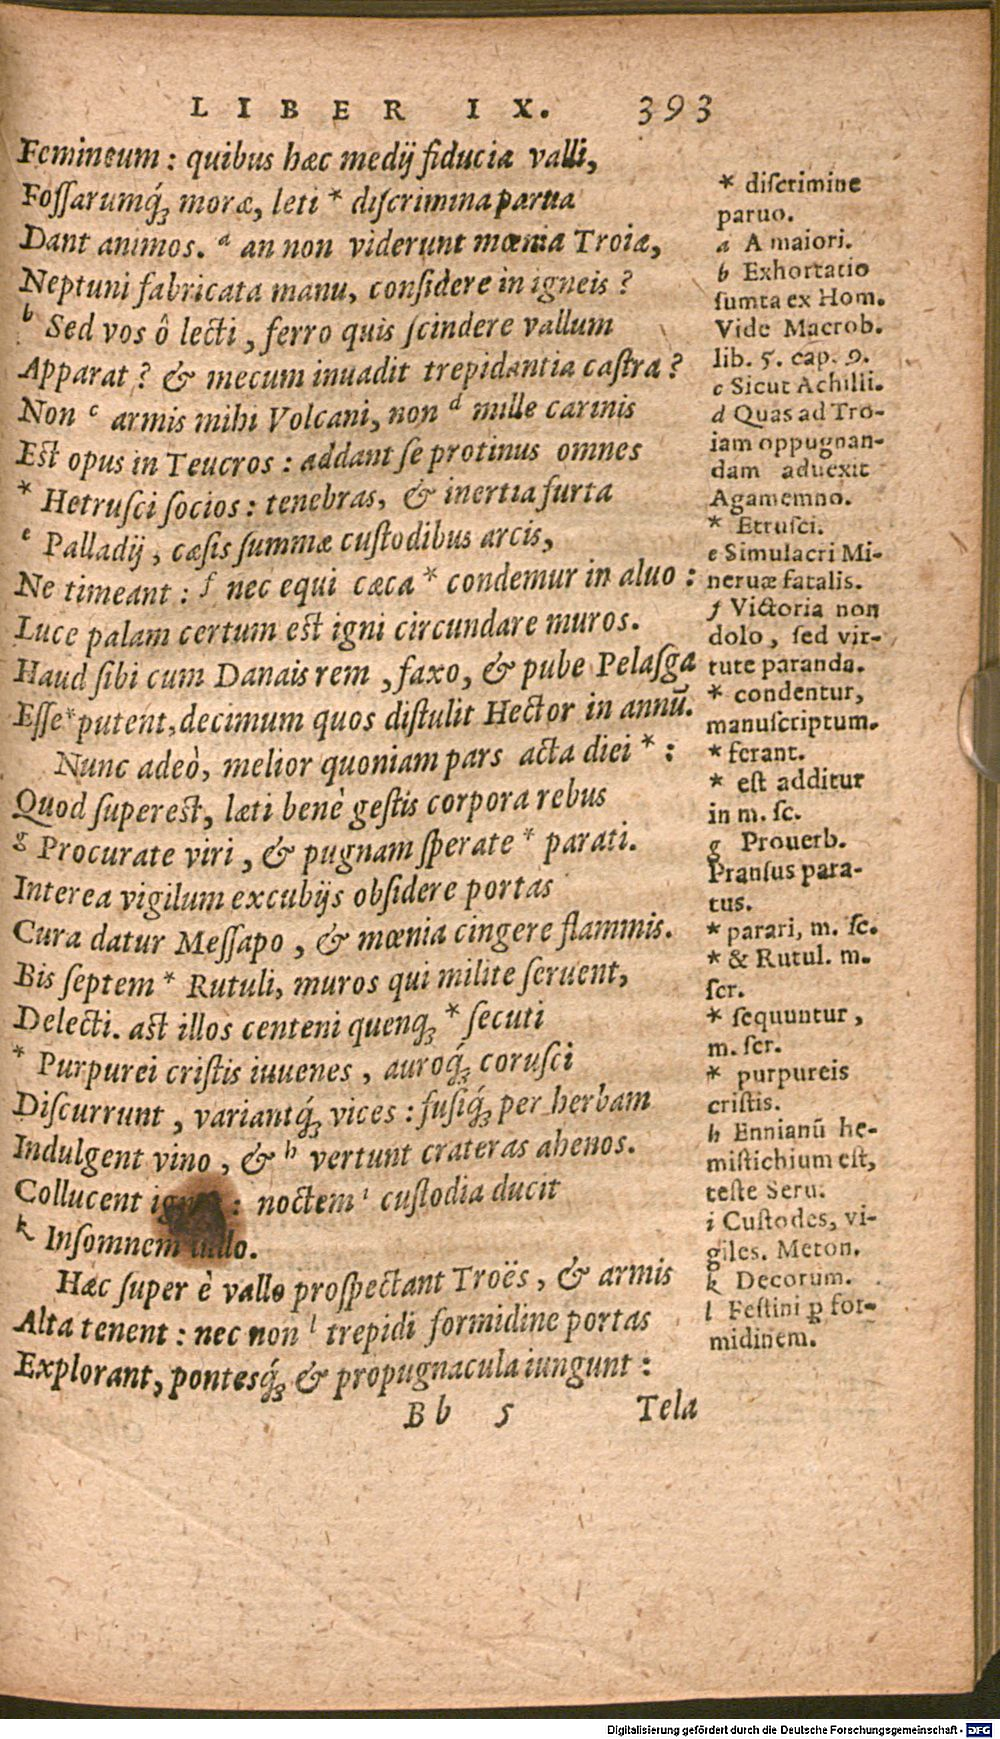 LIBER IX. 393
Femineum : quibus hæc medij fiducia valli,
Foſſarumq́ꝫ moræ, leti * diſcrimina parua
Dant animos. a an non viderunt mœnia Troiæ,
Neptuni fabricata manu, conſidere in igneis ?
b Sed vos ô lecti, ferro quis ſcindere vallum
Apparat ? & mecum inuadit trepidantia caſtra ?
Non c armis mihi Volcani, non d mille carinis
Eſt opus in Teucros : addant ſe protinus omnes
* Hetruſci ſocios : tenebras, & inertia furta
e Palladij, cæſis ſummæ cuſtodibus arcis,
Ne timeant : f nec equi cæca * condemur in aluo :
Luce palam certum eſt igni circundare muros.
Haud ſibi cum Danais rem, faxo, & pube Pelaſga
Eſſe * putent, decimum quos diſtulit Hector in annū.
Nunc adeò, melior quoniam pars acta diei * :
Quod ſupereſt, læti benè geſtis corpora rebus
g Procurate viri, & pugnam ſperate * parati.
Interea vigilum excubijs obſidere portas
Cura datur Meſſapo, & mœnia cingere flammis.
Bis ſeptem * Rutuli, muros qui milite ſeruent,
Delecti. aſt illos centeni quenqꝫ * ſecuti
* Purpurei criſtis iuuenes, auroq́ꝫ coruſci
Diſcurrunt, variantq́ꝫ vices : fuſiq́ꝫ per herbam
Indulgent vino, & h vertunt crateras ahenos.
Collucent : noctem i cuſtodia ducit
k Inſomnem
Hæc ſuper è vallo proſpectant Troës, & armis
Alta tenent : nec non l trepidi formidine portas
Explorant, pontesq́ꝫ & propugnacula iungunt :
Bb 5 Tela
* diſcrimine
paruo.
a A maiori.
b Exhortatio
ſumta ex Hom.
Vide Macrob.
lib. 5. cap. 9.
c Sicut Achilli.
d Quas ad Tro-
iam oppugnan-
dam aduexit
Agamemno.
* Etruſci.
e Simulacri Mi-
neruæ fatalis.
f Victoria non
dolo, ſed vir-
tute paranda.
* condentur,
manuſcriptum.
* ferant.
* eſt additur
in m. ſc.
g Prouerb.
Pranſus para-
tus.
* parari, m. ſc.
* & Rutul. m.
ſcr.
* ſequuntur,
m. ſcr.
* purpureis
criſtis.
h Ennianū he-
miſtichium eſt,
teſte Seru.
i Cuſtodes, vi-
giles. Meton.
k Decorum.
l Feſtini ꝑ for-
midinem.
Digitalisierung gefördert durch die Deutsche Forschungsgemeinschaft - DFG